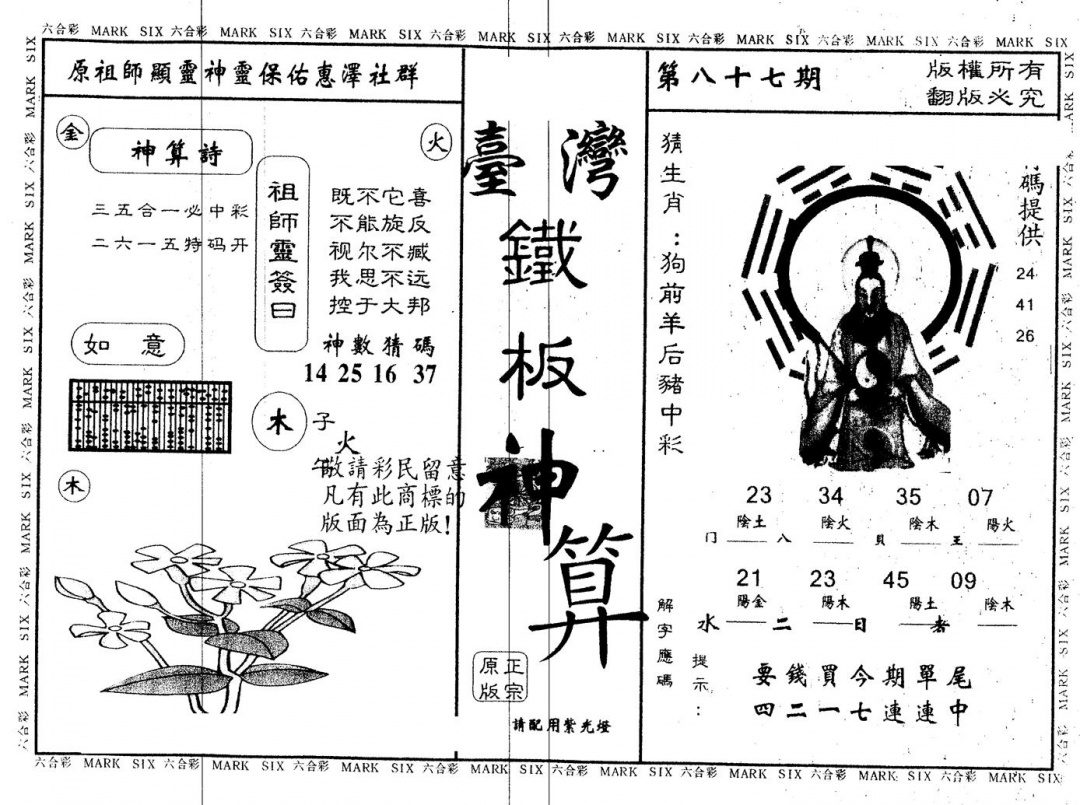 六合彩 MARK SIX 六合彩 MARK SIX 六合彩 MARK SIX 六合彩 MARK SIX 六合彩 MARK SIX 六合彩 MARK SIX 六合彩 MARK SIX 六合彩 MARK SIX
原祖師顯靈神靈保佑惠澤社群
金
神算詩
火
三五合一必中彩
二六一五特码开
祖師靈簽曰
既不它喜
不能旋反
视尔不臧
我思不远
控于大邦
神數猜碼
14 25 16 37
如意
木
子
火
午
木
敬請彩民留意
凡有此商標的
版面為正版!
臺灣
鐵
板
神
算
原正
版宗
請配用紫光燈
第八十七期
版權所有
翻版必究
猜生肖:狗前羊后豬中彩
碼提供
24
41
26
23 34 35 07
陰土 陰火 陰木 陽火
门 八 貝 王
21 23 45 09
陽金 陽木 陽土 陰木
水 二 日 者
解字應碼
提示:
要錢買今期單尾
四二一七連連中
六合彩 MARK SIX 六合彩 MARK SIX 六合彩 MARK SIX 六合彩 MARK SIX 六合彩 MARK SIX 六合彩 MARK SIX 六合彩 MARK SIX 六合彩 MARK SIX